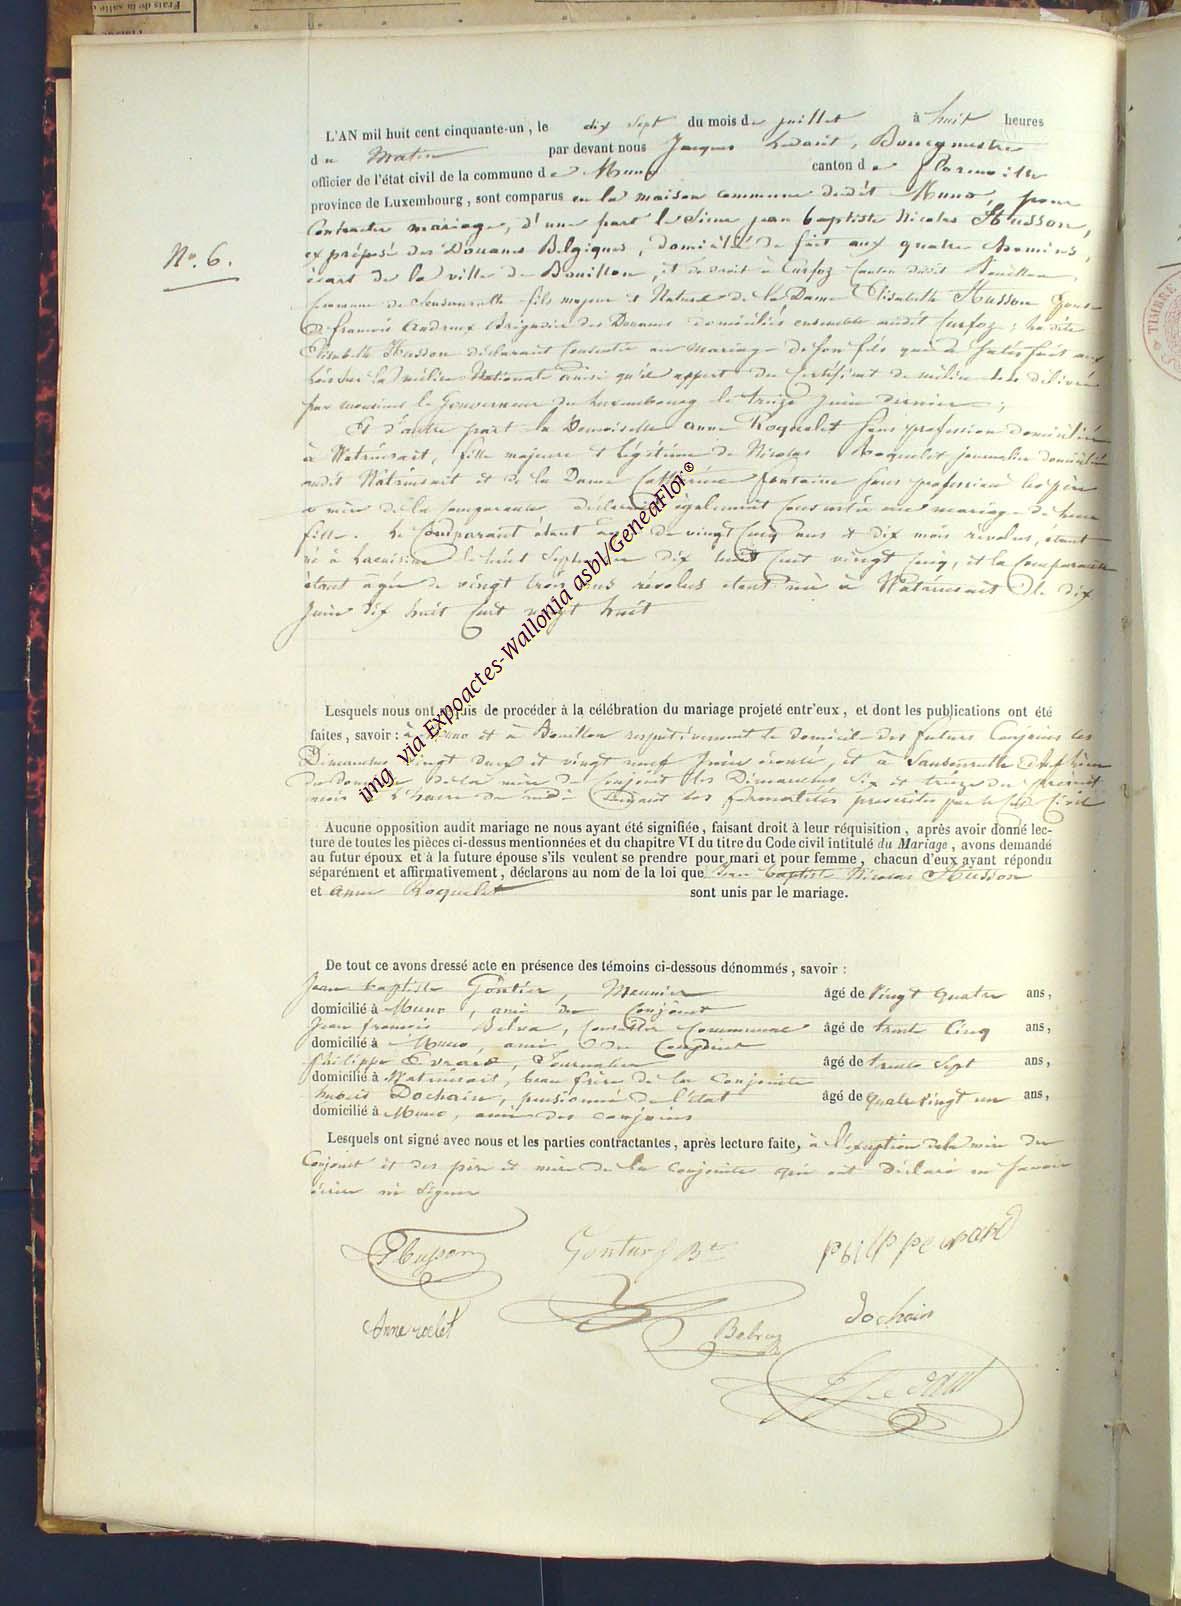 Frais de la salle d
No. 6.
L'AN mil huit cent cinquante-un, le dix sept du mois de juillet à huit heures
du Matin par devant nous Jacques Ledant, Bourgmestre
officier de l'état civil de la commune de Muno canton de Florenville
province de Luxembourg, sont comparus en la maison commune dudit Muno, pour
Contracter mariage, d'une part le Sieur jean baptiste Nicolas Husson,
ex préposé des Douanes Belgiques, domicilié de fait aux quatre
écart de la ville de Bouillon, et de droit à Curfoz dudit Bouillon,
Commune de Sensenruth fils majeur et Naturel de la Dame Elisabeth Husson
de francois Brigadier des Douanes domiciliés ensemble audit Curfoz; la dite
Elisabeth Husson déclarant Consentir au mariage de son fils qui a satisfait aux
Lois sur la milice Nationale ainsi qu'il appert du Certificat de milice délivré
par monsieur le Gouverneur du Luxembourg le treize juin dernier;
Et d'autre part la Demoiselle Anne Roquelet sans profession domiciliée
à Watrinsart, fille majeure et légitime de Nicolas Roquelet journalier domicilié
audit Watrinsart et de la Dame Catherine fontaine sans profession les père
et mère de la Comparante déclarant également consentir au mariage de leur
fille. Le Comparant étant âgé de vingt cinq ans et dix mois révolus, étant
né à Lacuisine le huit Septembre dix huit cent vingt cinq, et la Comparante
étant agée de vingt trois ans révolus etant née à Watrinsart le dix
Juin dix huit cent vingt huit
Lesquels nous ont requis de procéder à la célébration du mariage projeté entr'eux, et dont les publications ont été
faites, savoir: à Muno et à Bouillon respectivement le domicile des futurs Conjoints les
Dimanches vingt deux et vingt neuf Juin écoulé, et à Sensenruth
du domicile de la mère du Conjoint les Dimanches six et treize du présent
mois à l'heure de midi suivant les formalités prescrites par le Code Civil
Aucune opposition audit mariage ne nous ayant été signifiée, faisant droit à leur réquisition, après avoir donné lec-
ture de toutes les pièces ci-dessus mentionnées et du chapitre VI du titre du Code civil intitulé du Mariage, avons demandé
au futur époux et à la future épouse s'ils veulent se prendre pour mari et pour femme, chacun d'eux ayant répondu
séparément et affirmativement, déclarons au nom de la loi que Jean baptiste Nicolas Husson
et Anne Roquelet sont unis par le mariage.
De tout ce avons dressé acte en présence des témoins ci-dessous dénommés, savoir:
Jean baptiste Gontier, Meunier âgé de vingt quatre ans,
domicilié à Muno, ami du Conjoint
Jean francois, Conseiller Communal âgé de trente cinq ans,
domicilié à Muno, ami du Conjoint
Philippe Evrard, Journalier âgé de trente sept ans,
domicilié à Watrinsart, beau frère de la Conjointe
hubert Dochain, pensionné de l'état âgé de quatre vingt un ans,
domicilié à Muno, ami des conjoints
Lesquels ont signé avec nous et les parties contractantes, après lecture faite, à l'exception de la mère du
Conjoint et des père et mère de la Conjointe qui ont déclaré ne savoir
écrire ni Signer
Husson
philippe evrard
Anne roclet
Dochain
Ledant
TIMBRE
img via Expoactes-Wallonia asbl/GeneaFlor®